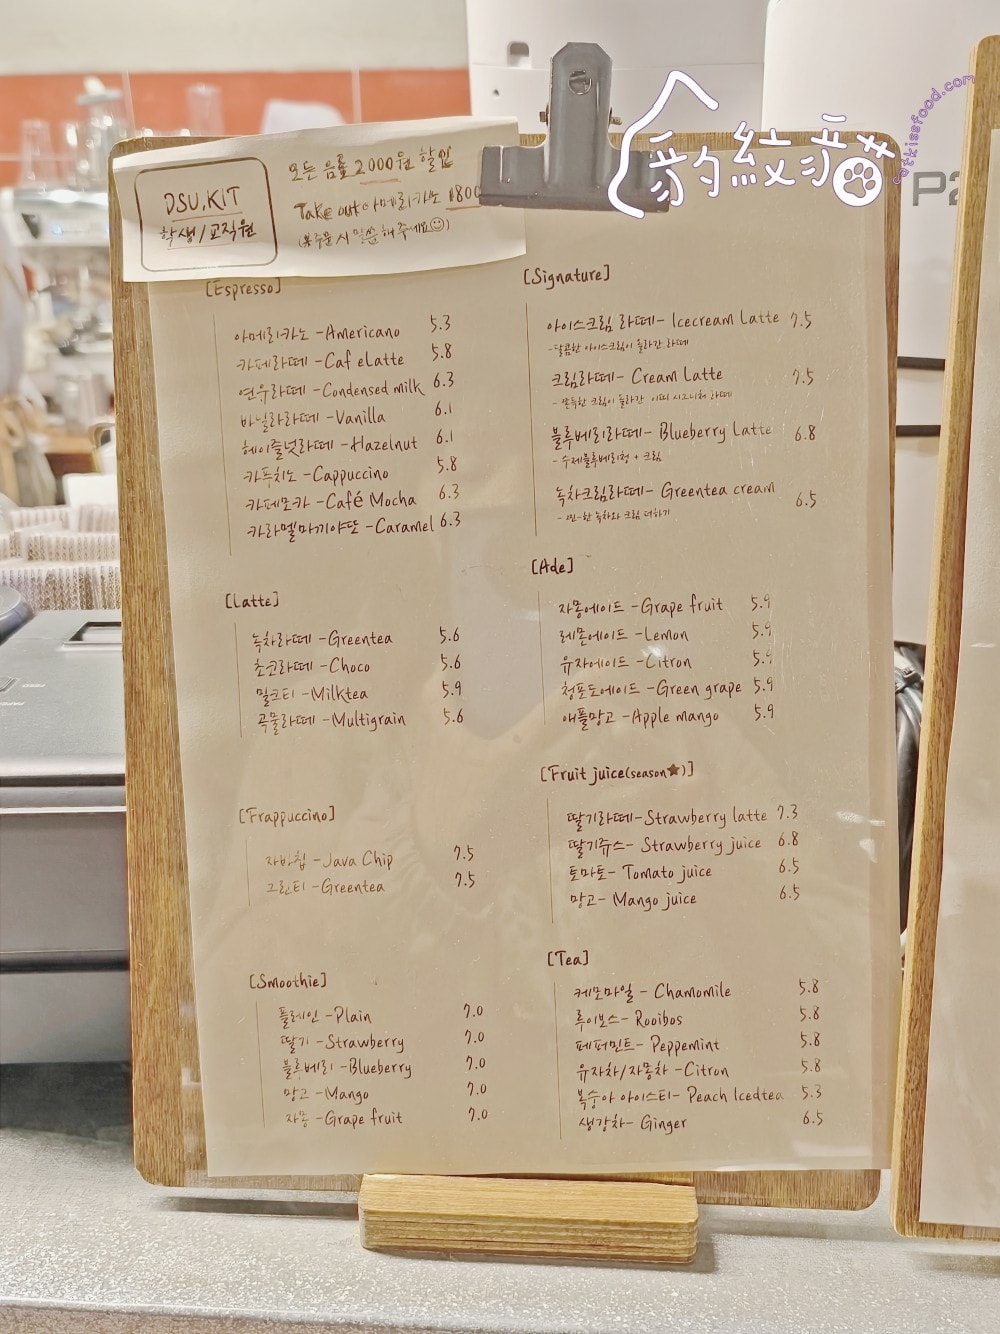 DSU, KIT
학생/교직원
모든 음료 2000원 할인
Take out 아메리카노 1800
(꼭 주문 시 말씀해주세요☺)
豹紋貓
catkissfood.com
[Espresso]
아메리카노 -Americano 5.3
카페라떼 -Caf eLatte 5.8
연유라떼 -Condensed milk 6.3
바닐라라떼 -Vanilla 6.1
헤이즐넛라떼 -Hazelnut 6.1
카푸치노 -Cappuccino 5.8
카페모카 -Café Mocha 6.3
카라멜마끼야또 -Caramel 6.3
[Latte]
녹차라떼 -Greentea 5.6
초코라떼 -Choco 5.6
밀크티 -Milktea 5.9
곡물라떼 -Multigrain 5.6
[Frappuccino]
자바칩 -Java Chip 7.5
그린티 -Greentea 7.5
[Smoothie]
플레인 -Plain 7.0
딸기 -Strawberry 7.0
블루베리 -Blueberry 7.0
망고 -Mango 7.0
자몽 -Grape fruit 7.0
[Signature]
아이스크림 라떼- Icecream Latte 7.5
-달콤한 아이스크림이 올라간 라떼
크림라떼- Cream Latte 7.5
- 쫀득한 크림이 올라간 시그니처 라떼
블루베리라떼- Blueberry Latte 6.8
- 수제블루베리청 + 크림
녹차크림라떼- Greentea cream 6.5
- 찐-한 녹차와 크림 더하기
[Ade]
자몽에이드 -Grape fruit 5.9
레몬에이드 -Lemon 5.9
유자에이드 -Citron 5.9
청포도에이드 -Green grape 5.9
애플망고 -Apple mango 5.9
[Fruit juice(season★)]
딸기라떼-Strawberry latte 7.3
딸기쥬스- Strawberry juice 6.8
토마토- Tomato juice 6.5
망고- Mango juice 6.5
[Tea]
케모마일 - Chamomile 5.8
루이보스- Rooibos 5.8
페퍼민트- Peppemint 5.8
유자차/자몽차 -Citron 5.8
복숭아 아이스티- Peach Icedtea 5.3
생강차- Ginger 6.5